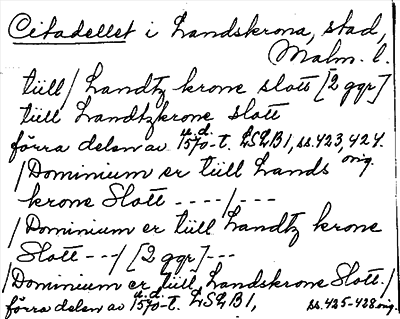 Citadellet i Landskrona, stad,
Malm. l.
tiill / Landtz krone slott [2 ggr]
tiill Landtzkrone slott
förra delen av 1570-t. u.d. LSQB1, ss. 423, 424.
orig.
/ Dominium er tiill Lands
krone Slott - - - - / - - -
/ Dominium er tiill Landtz krone
Slott - - - / [2 ggr] - - -
/ Dominium er tiill Landskrone Slott. /
förra delen av 1570-t. u.d. LSQB1, ss. 425-428 orig.